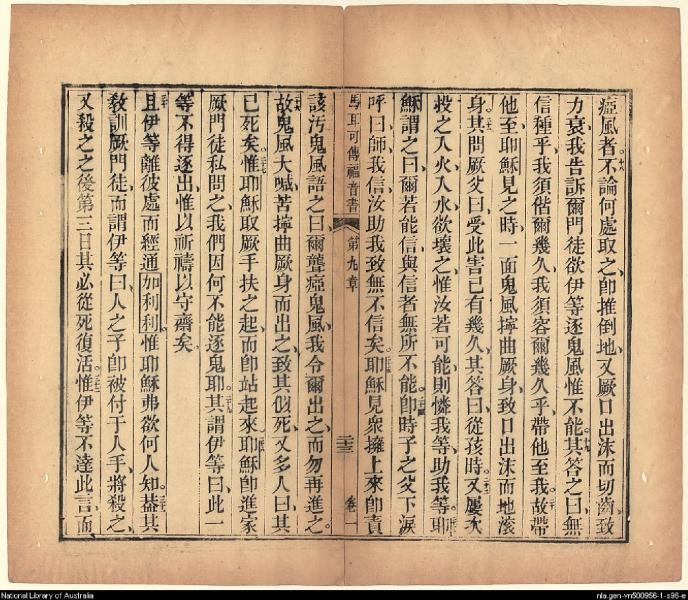 瘂風者不論何處取之、卽推倒地、又厥口出沫而切齒致
力衰、我告訴爾門徒欲伊等逐鬼風惟不能。其答之曰、無
信種乎、我須偕爾幾久、我須容爾幾久乎、帶他至我。故帶
他至耶穌、見之時、一面鬼風擰曲厥身、致口出沫而地滾
身。其問厥父曰、受此害已有幾久、其答曰、從孩時。又屢次
投之入火、入水、欲壞之、惟汝若可能、則憐我等、助我等。耶
穌謂之曰、爾若能信、與信者無所不能。卽時子之父下淚
呼曰、師、我信、汝助我致無不信矣。耶穌見衆擁上來、卽責
馬耳可傳福音書 第九章 二十三 卷一
該污鬼風、語之曰、爾聾瘂鬼風、我令爾出之、而勿再進之。
故鬼風大喊、苦擰曲厥身而出之、致其似死、又多人曰、其
已死矣。惟耶穌取厥手扶之起、而卽站起來。耶穌卽進家
厥門徒私問之、我們因何不能逐鬼耶。其謂伊等曰、此一
等不得逐出、惟以祈禱以守齋矣。
且伊等離彼處而經通加利利、惟耶穌弗欲何人知。葢其
敎訓厥門徒、而謂伊等曰、人之子卽被付于人手、將殺之、
又殺之之後第三日、其必從死復活。惟伊等不達此言、而
National Library of Australia
nla.gen-vn500956-1-s96-e